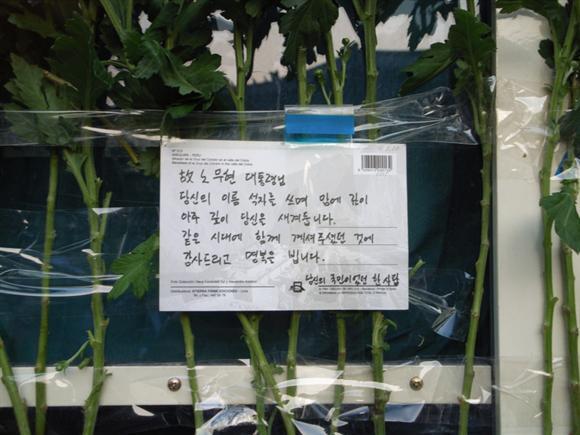 AREQUIPA - PERU
故 노무현 대통령님
당신의 이름 석자를 쓰며 맘에 깊이
아주 깊이 당신은 새겨둡니다.
같은 시대에 함께 계셔주셨던 것에
감사드리고 명복은 빕니다.
당신의 국민이었던 한 사람